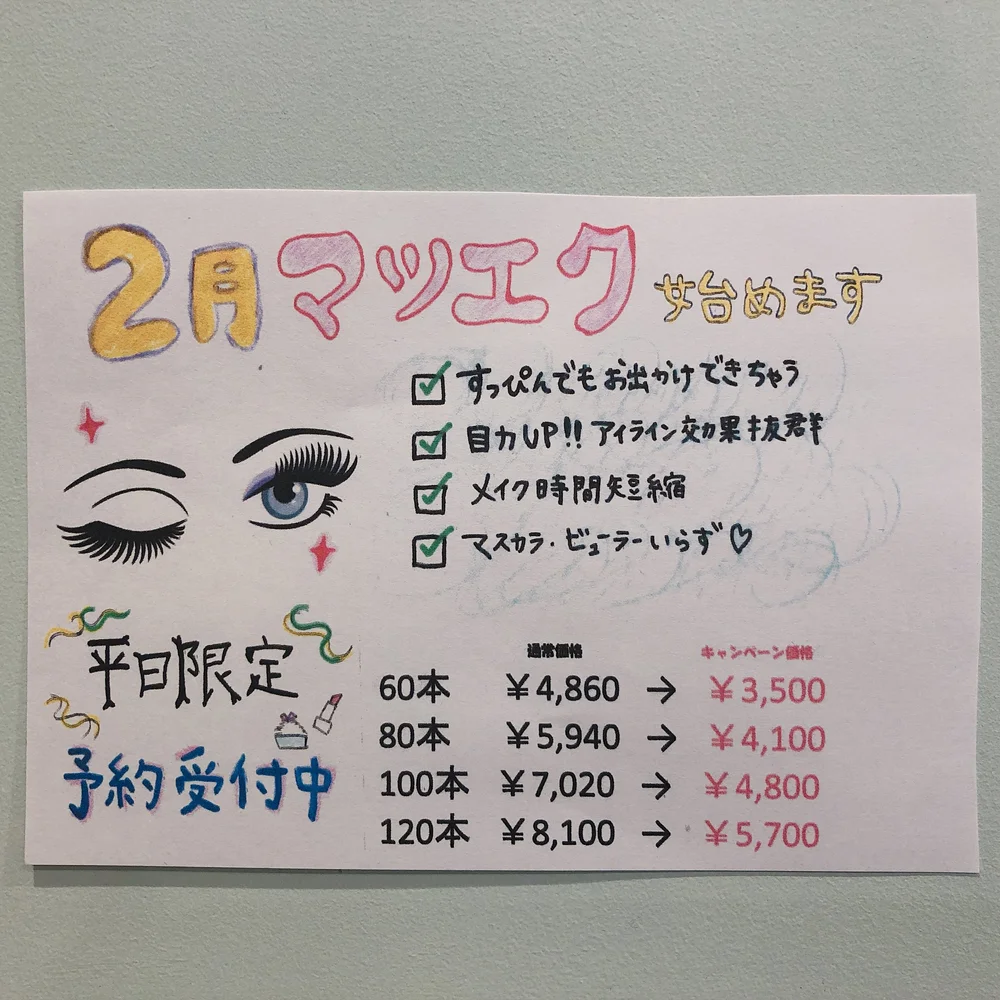 2月マツエク始めます
☑ すっぴんでもお出かけできちゃう
☑ 目力UP!! アイライン効果抜群
☑ メイク時間短縮
☑ マスカラ・ビューラーいらず♡
平日限定
予約受付中
通常価格 キャンペーン価格
60本 ￥4,860 → ￥3,500
80本 ￥5,940 → ￥4,100
100本 ￥7,020 → ￥4,800
120本 ￥8,100 → ￥5,700